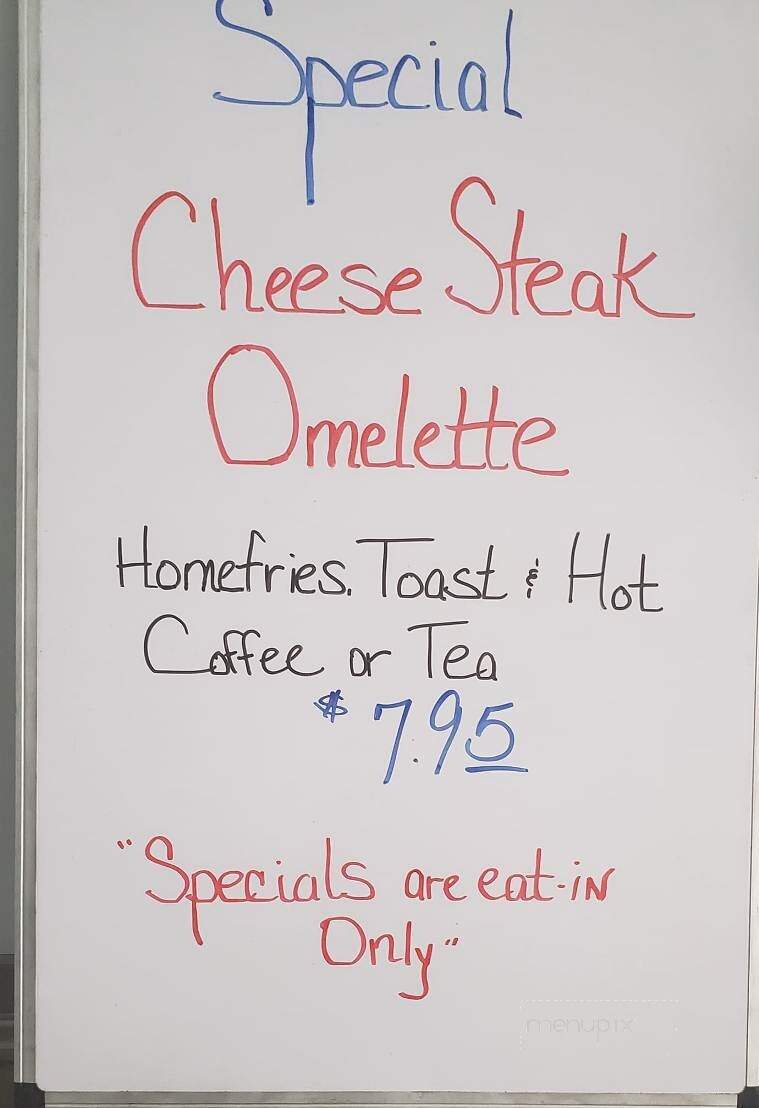 Special
Cheese Steak
Omelette
Homefries. Toast & Hot
Coffee or Tea
$7.95
"Specials are eat-in
Only"
menupix